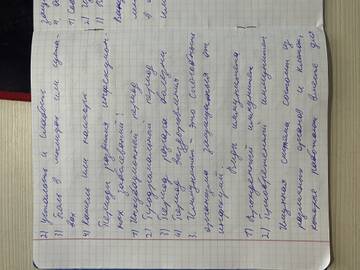 2) усталость и слабость
3) Боль в мышцах или суста-
вах
4) Кашель или насморк
Периоды развития инфекцион-
ных заболеваний:
1) Инкубационный период
2) Продромальный период
3) Период разгара болезни
4) Период выздоровления
3. Иммунитет - это способность
организма защищаться от
инфекций.
Виды иммунитета
1) Врожденный иммунитет
2) Приобретенный иммунитет
Имунная система состоит из
различных органов и клеток,
которые работают вместе для